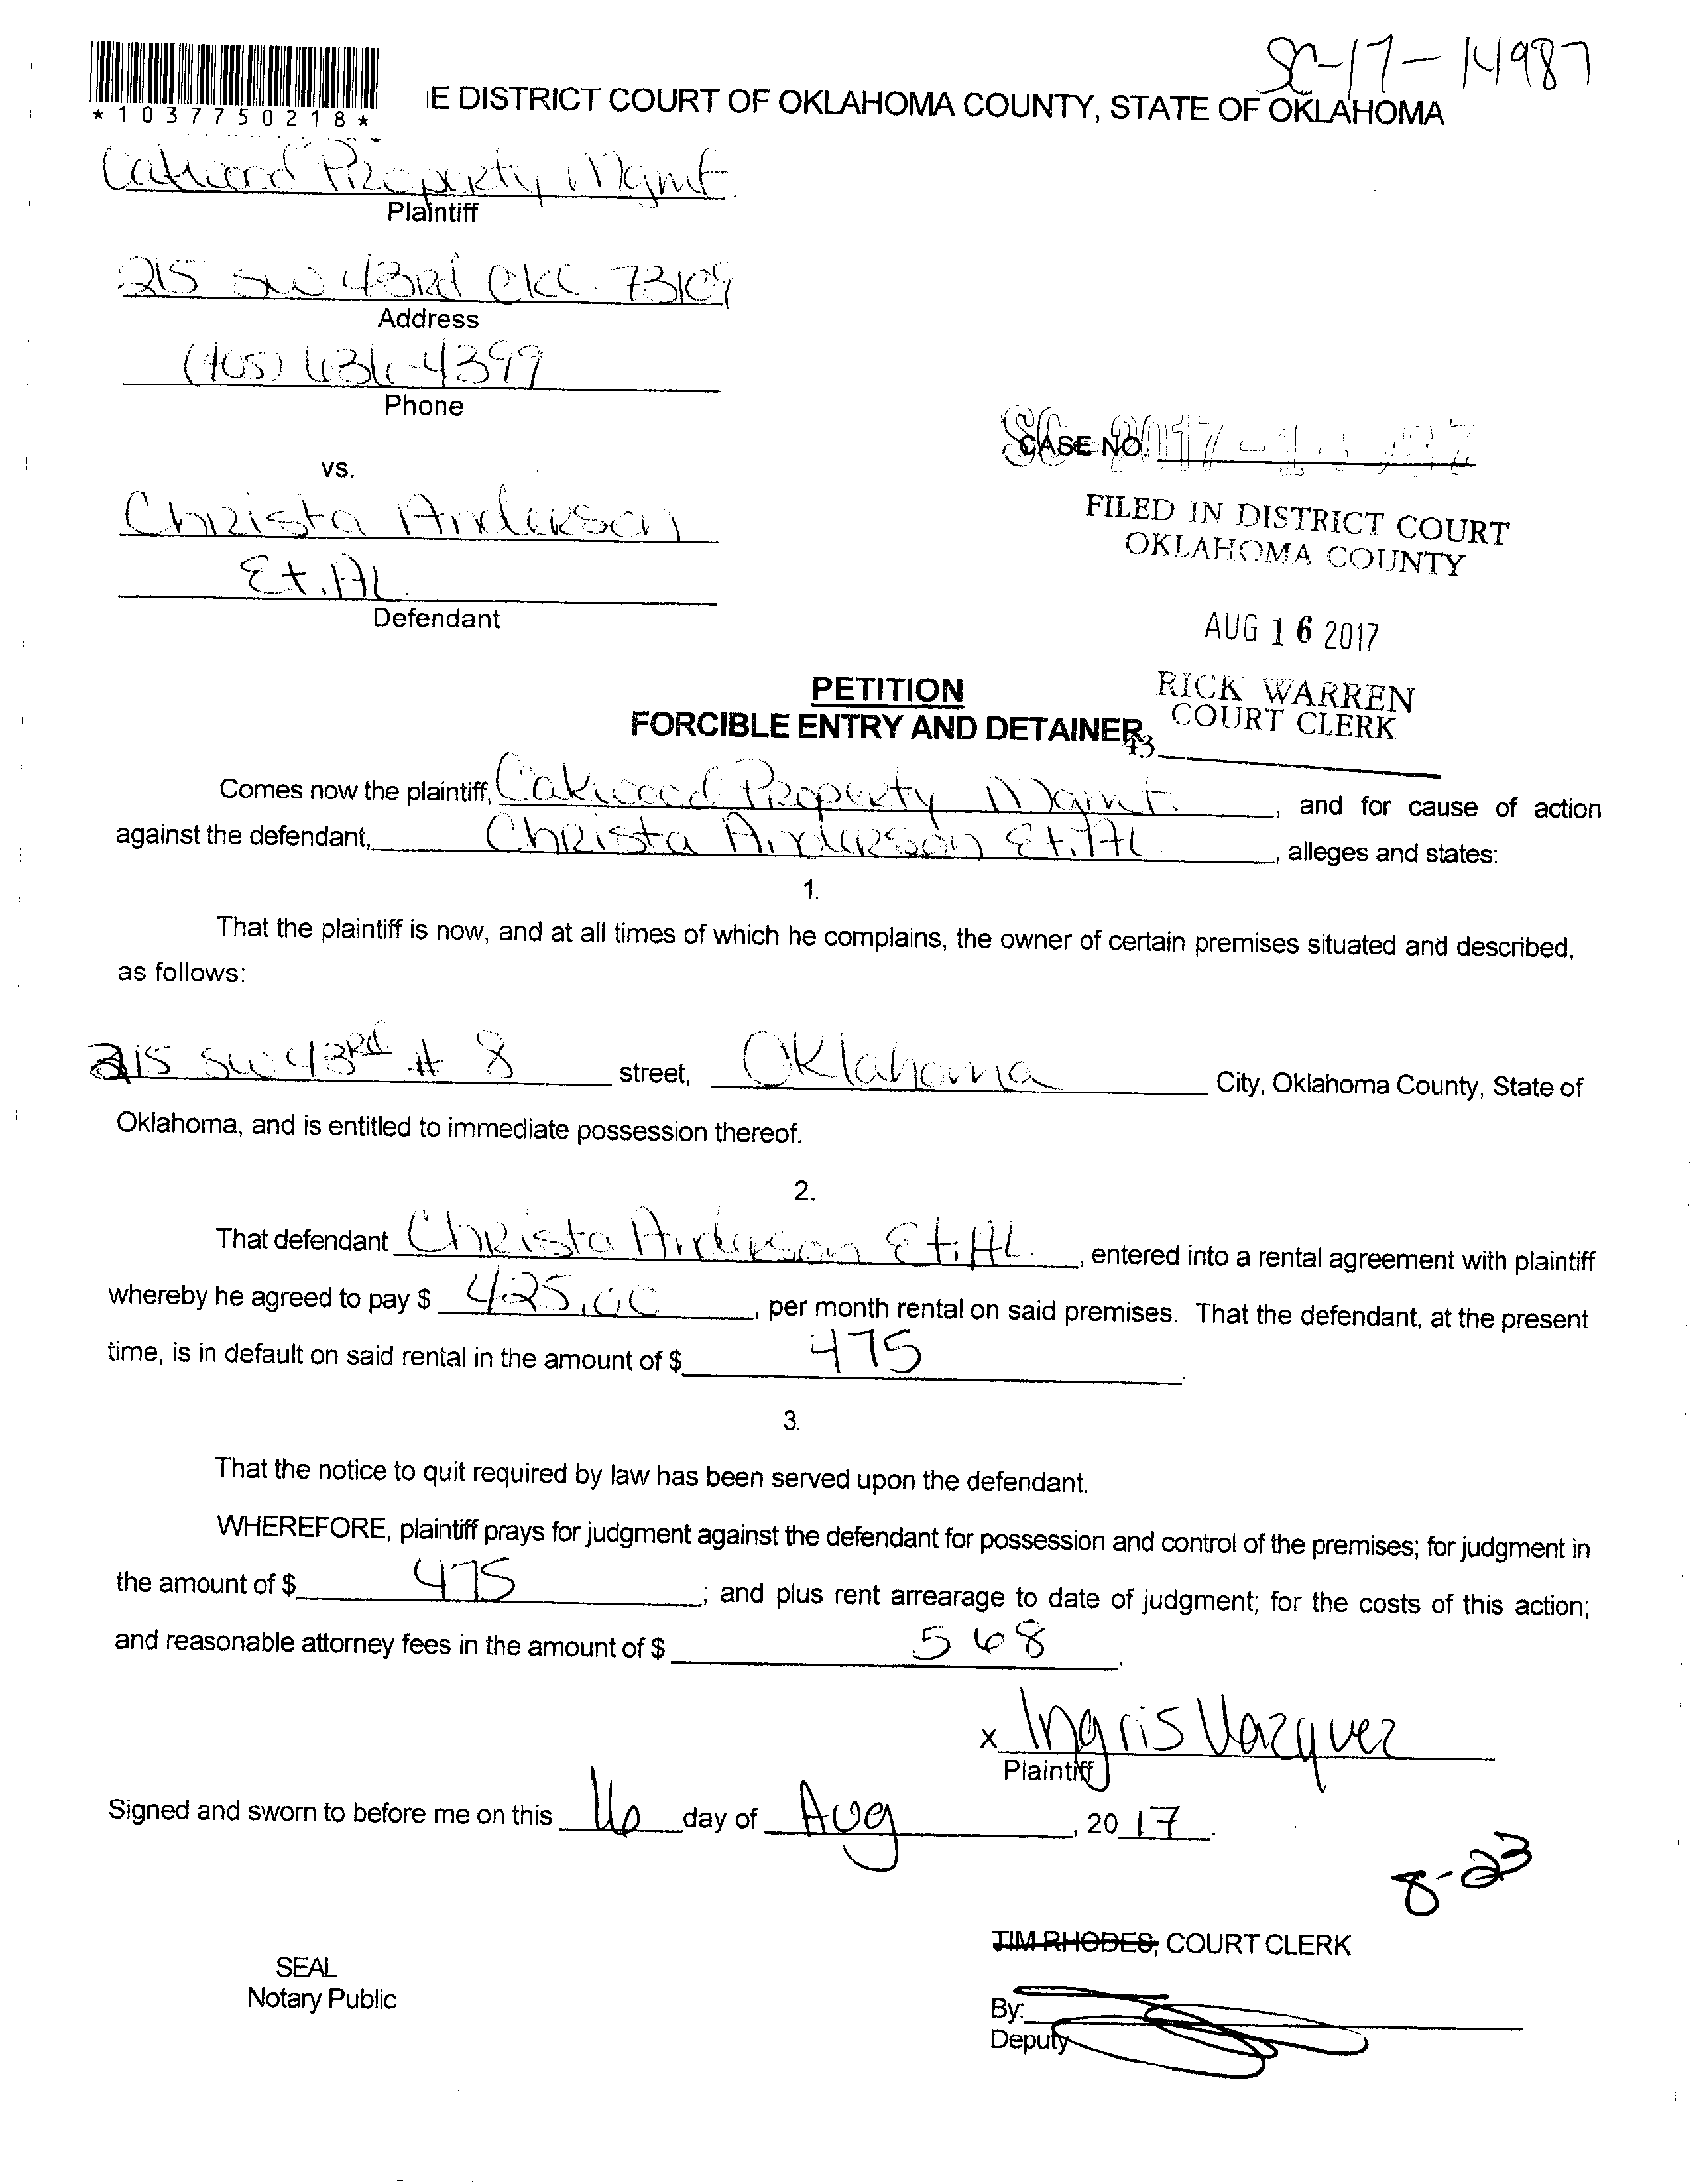 SC-17-14987
*1037750218*
E DISTRICT COURT OF OKLAHOMA COUNTY, STATE OF OKLAHOMA
Oakwood Property Mgmt.
Plaintiff
215 SW 43rd OKC. 73109
Address
(405) 636-4399
Phone
SC 2017-
CASE NO.
vs.
Christa Anderson
Et. AL
Defendant
FILED IN DISTRICT COURT
OKLAHOMA COUNTY
AUG 16 2017
RICK WARREN
COURT CLERK
43
PETITION
FORCIBLE ENTRY AND DETAINER
Comes now the plaintiff, Oakwood Property Mgmt. , and for cause of action
against the defendant, Christa Anderson Et. AL , alleges and states:
1.
That the plaintiff is now, and at all times of which he complains, the owner of certain premises situated and described,
as follows:
215 SW 43rd # 8 street, Oklahoma City, Oklahoma County, State of
Oklahoma, and is entitled to immediate possession thereof.
2.
That defendant Christa Anderson Et. AL. , entered into a rental agreement with plaintiff
whereby he agreed to pay $ 425.00 , per month rental on said premises. That the defendant, at the present
time, is in default on said rental in the amount of $ 475 .
3.
That the notice to quit required by law has been served upon the defendant.
WHEREFORE, plaintiff prays for judgment against the defendant for possession and control of the premises; for judgment in
the amount of $ 475 ; and plus rent arrearage to date of judgment; for the costs of this action;
and reasonable attorney fees in the amount of $ 568 .
x Ingris Vazquez
Plaintiff
Signed and sworn to before me on this 16 day of Aug , 20 17 .
8-23
TIM RHODES, COURT CLERK
SEAL
Notary Public
By:
Deputy